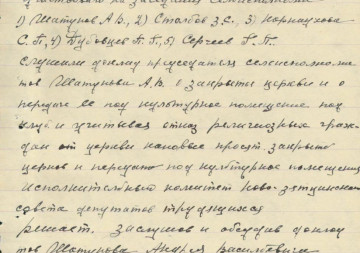 1) Шатунов А.В., 2) Столбов З.С., 3) Корнаухова
С.П., 4) Бубовцев П.П., 5) Сергеев Г.П.
слушали доклад председателя сельисполкоми
тов Шатунова А.В. О закрытии церкви и о
передаче ее под культурное помещение под
клуб и учитывая отказ религиозных граж
дан от церкви каковые просят закрыть
церков и передать под культурное помещение
исполнительный комитет Ново-
совета депутатов трудящихся
решает. заслушав и обсудив доклад
тов Шатунова Андрея Васильевича